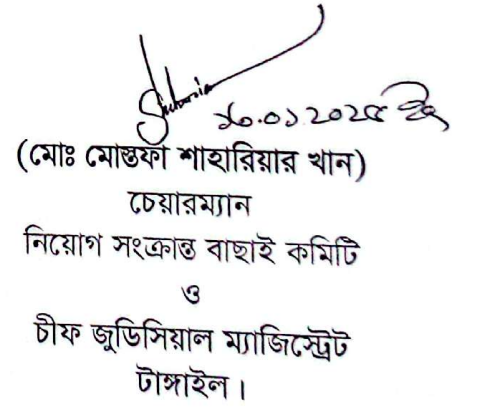 (মোঃ মোস্তফা শাহারিয়ার খান)
চেয়ারম্যান
নিয়োগ সংক্রান্ত বাছাই কমিটি
ও
চীফ জুডিসিয়াল ম্যাজিস্ট্রেট
টাঙ্গাইল।